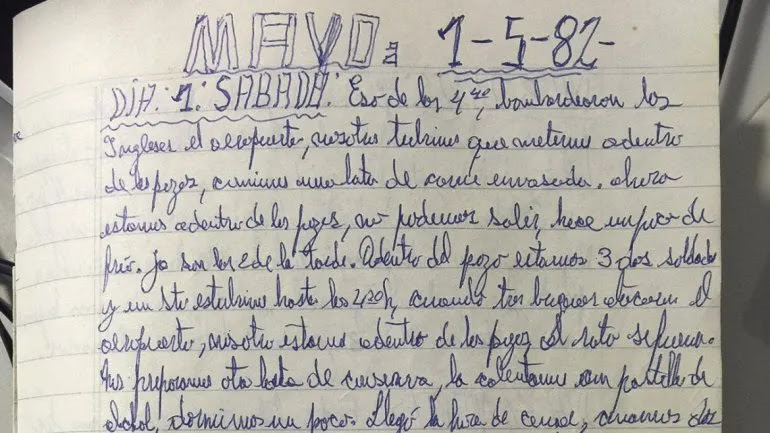 MAYO: 1-5-82-
DIA: 1: SABADO: Eso de las 4⁴⁰, bombardearon los
Ingleses el aeropuerto, nosotros tubimos que meternos adentro
de los pozos, comimos una lata de carne envasada. ahora
estamos adentro de los pozos, no podemos salir, hace un poco de
frio. ja son las 2 de la tarde. Adentro del pozo estamos 3 dos soldados
y un Sto estubimos hasta las 4³⁰h, cuando tres buques atacaron el
aeropuerto, nosotro estamos adentro de los pozoz al rato se fueron.
Nos preparamos otra lata de conserva, la calentamos con pastilla de
alchol, dormimos un poco. Llegó la hora de cenar, cenamos dos